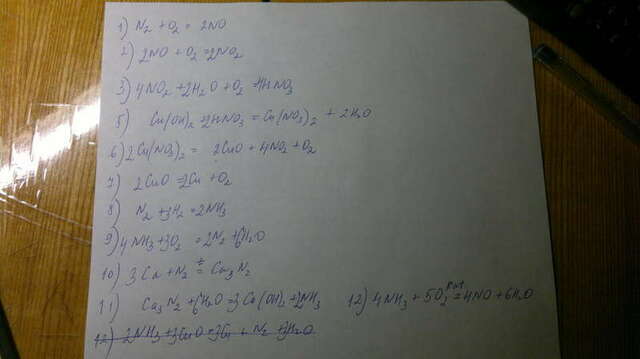 1) N₂ + O₂ = 2NO
2) 2NO + O₂ = 2NO₂
3) 4NO₂ + 2H₂O + O₂ = 4HNO₃
5) Cu(OH)₂ + 2HNO₃ = Cu(NO₃)₂ + 2H₂O
6) 2Cu(NO₃)₂ = 2CuO + 4NO₂ + O₂
7) 2CuO = 2Cu + O₂
8) N₂ + 3H₂ = 2NH₃
9) 4NH₃ + 3O₂ = 2N₂ + 6H₂O
10) 3Ca + N₂ = Ca₃N₂
11) Ca₃N₂ + 6H₂O = 3Ca(OH)₂ + 2NH₃ 12) 4NH₃ + 5O₂ = 4NO + 6H₂O
12) 2NH₃ + 3CuO = 3Cu + N₂ + 3H₂O